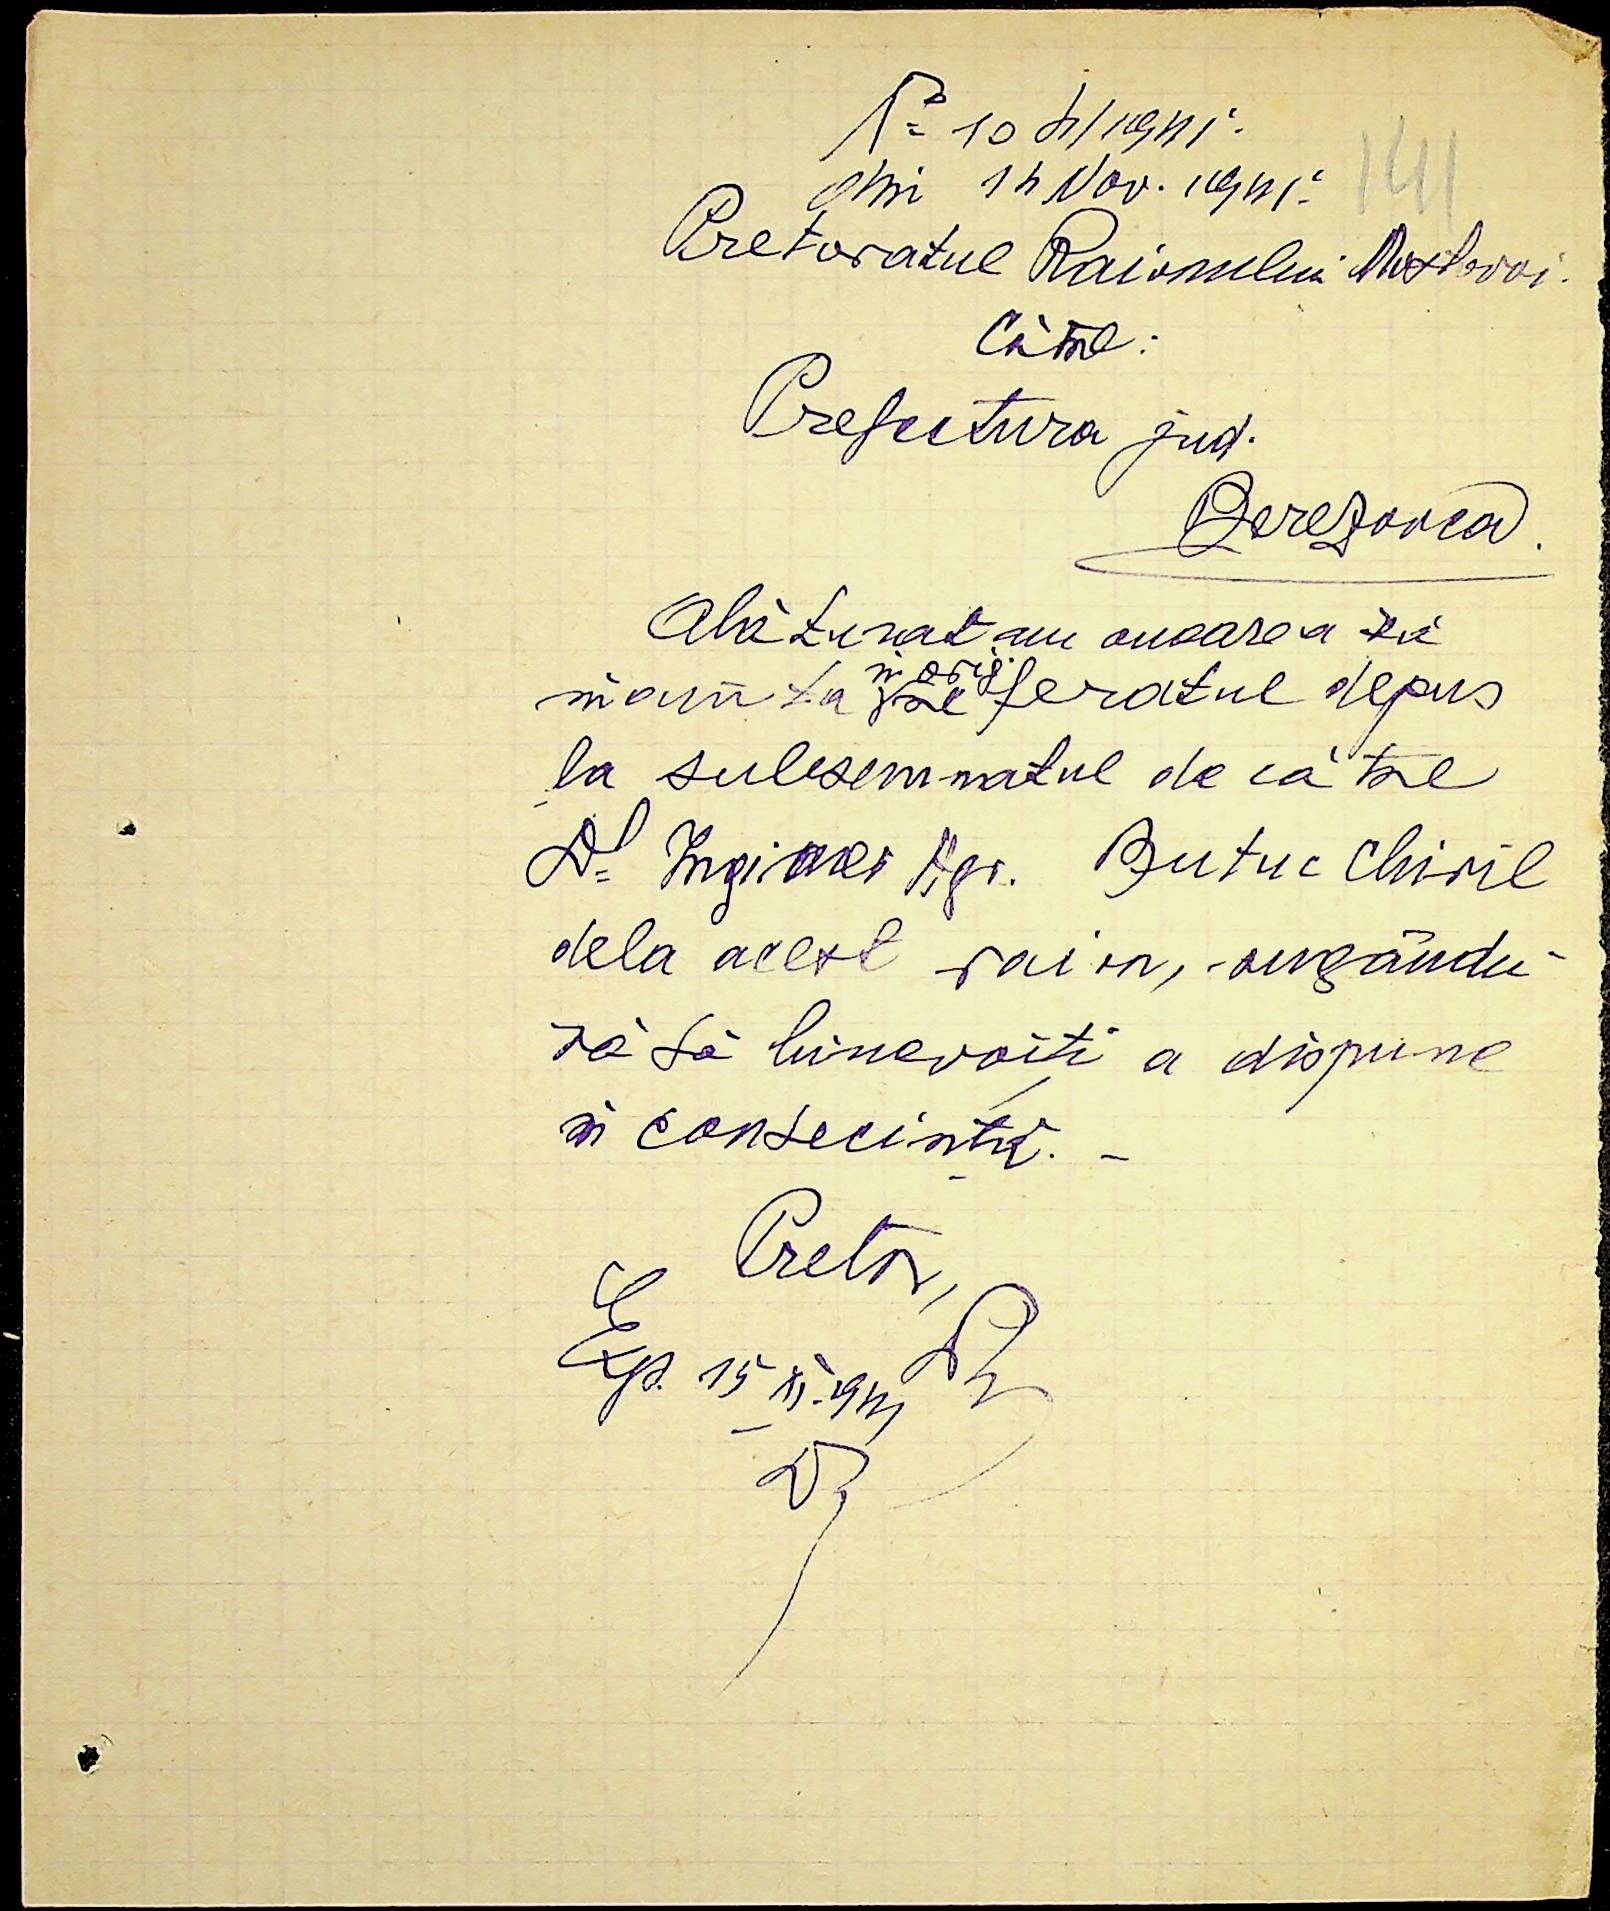 No 10 4/1941.
din 14 Nov. 1941.
141
Pretoratul Raionului Mostovoi.
Către:
Prefectura jud.
Berezovca.
Alăturat am onoarea vă
în orig.
înainta referatul depus
la subsemnatul de către
Dl Inginer Agr. Butuc Chiril
dela acest raion, rugându-
vă să binevoiți a dispune
în consecință. -
Pretor,
Exp. 15 XI. 941